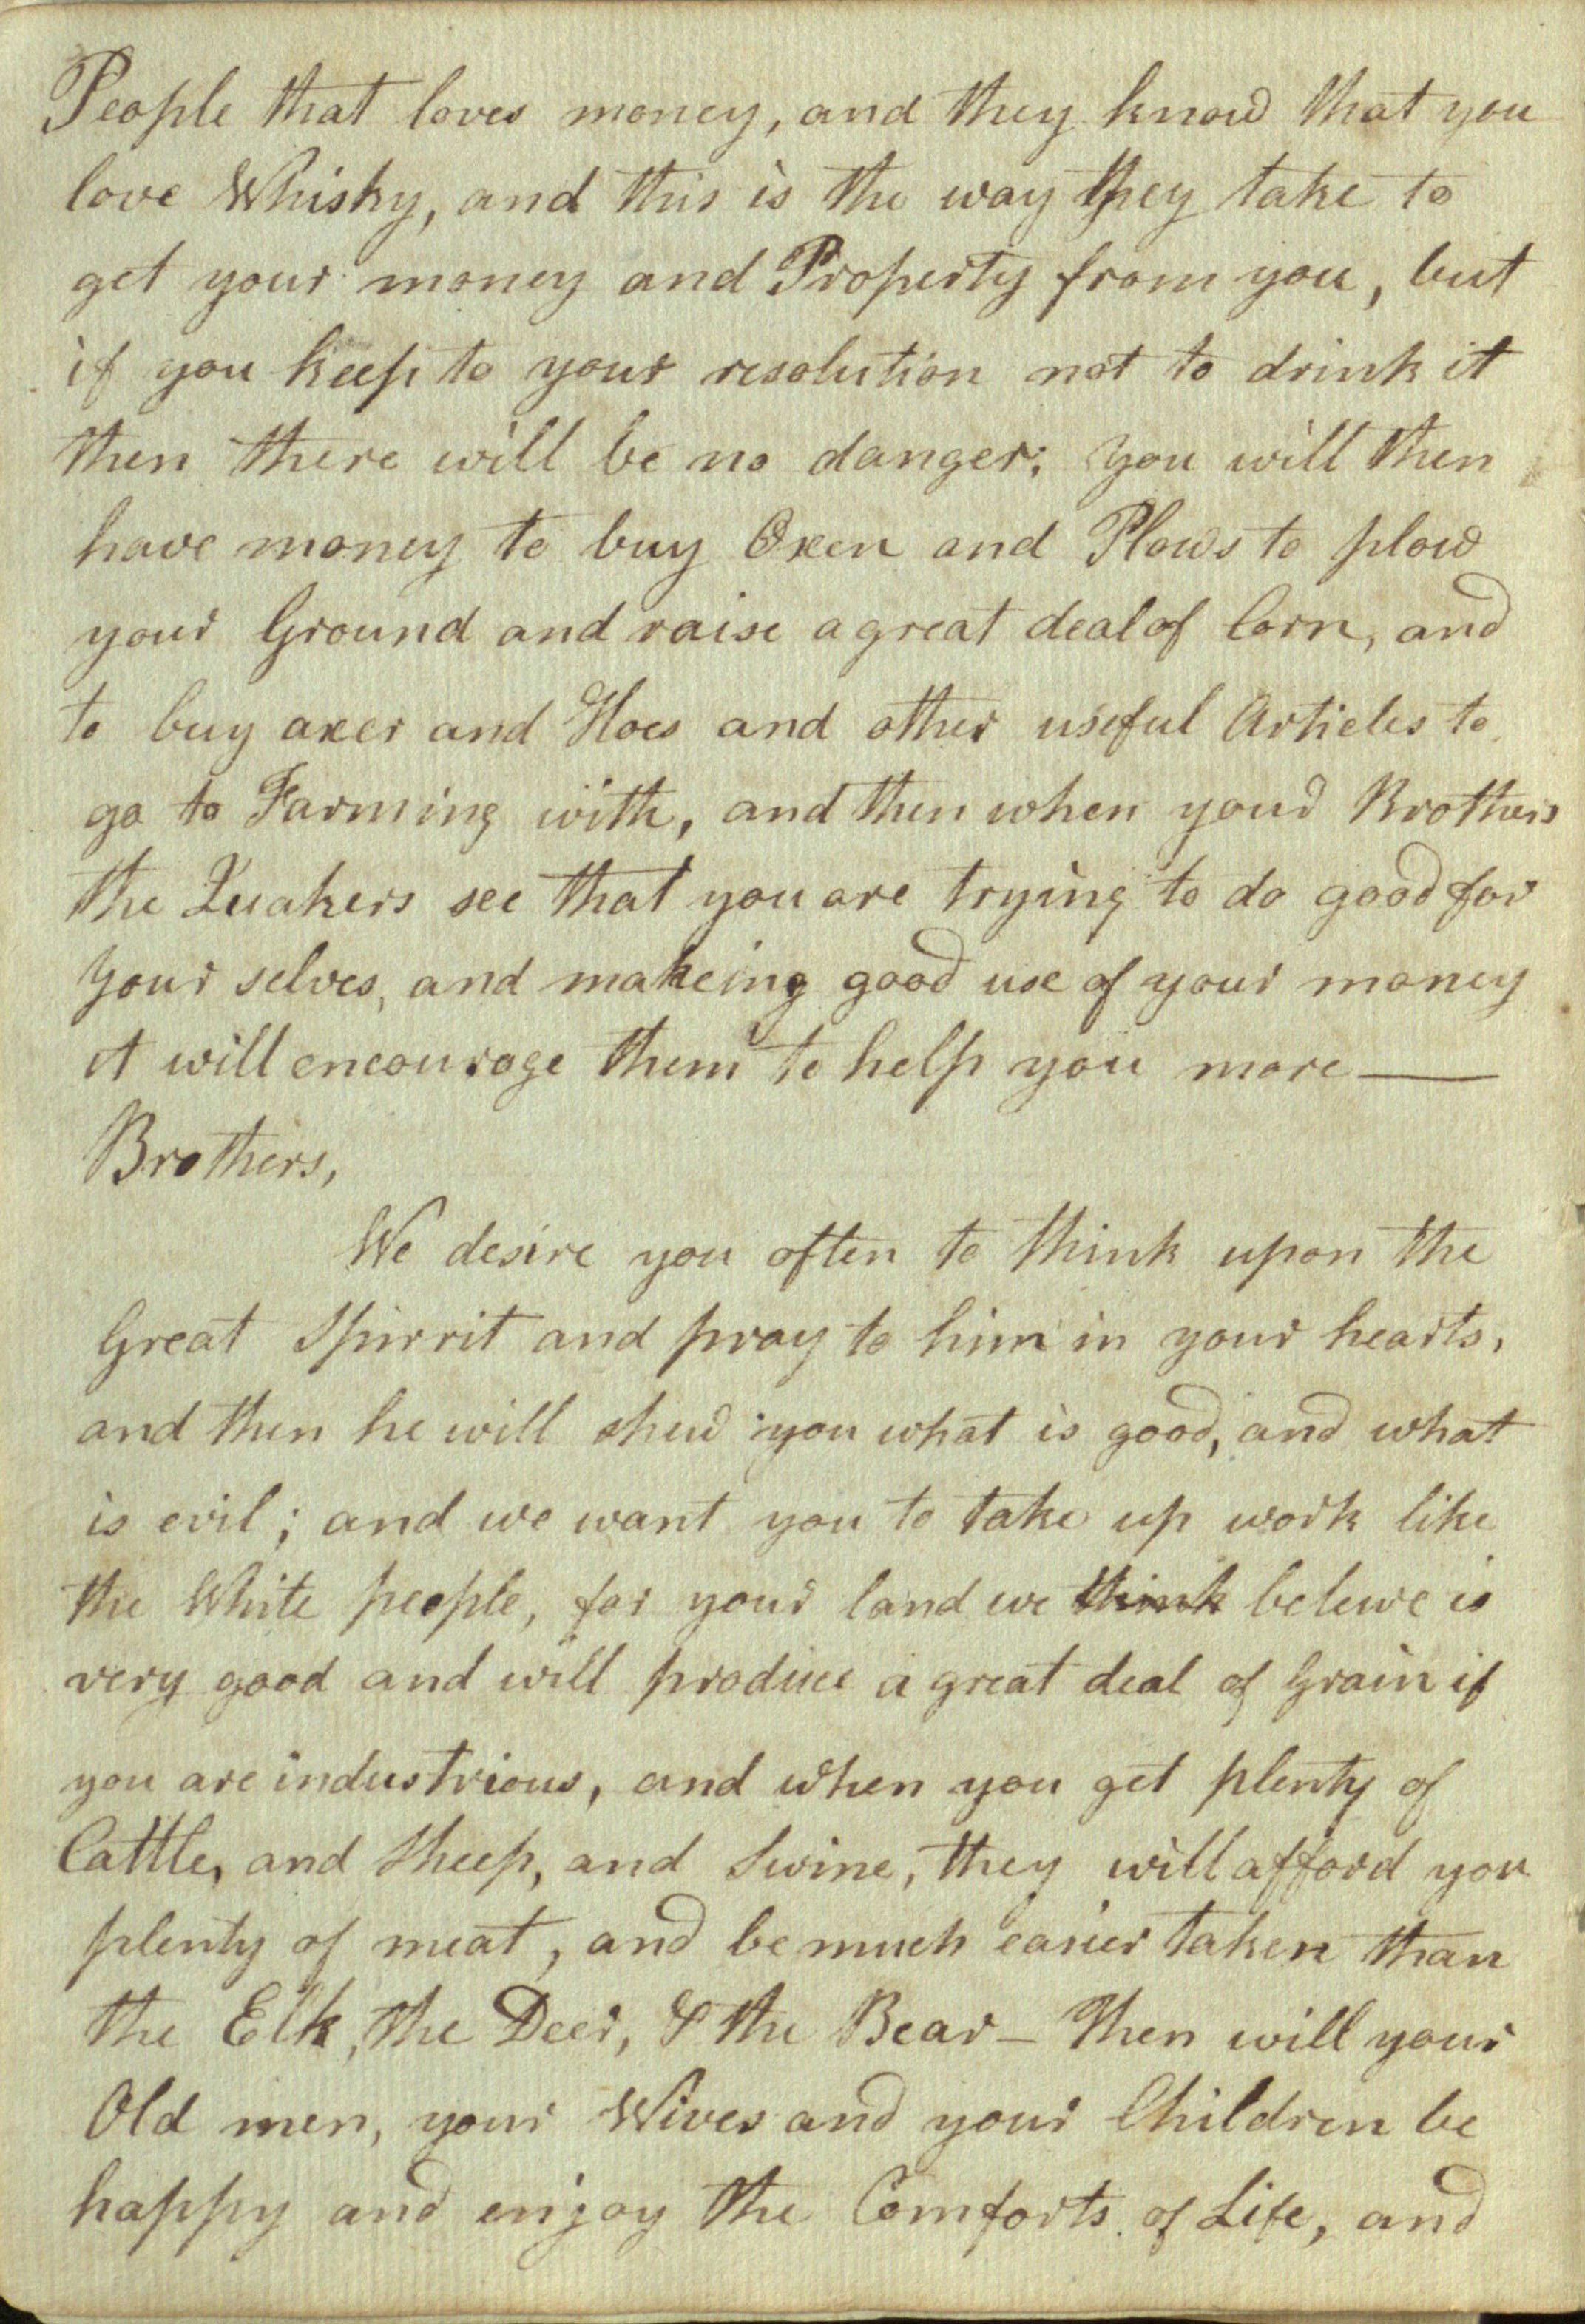 People that loves money, and they know that you
love Whisky, and this is the way they take to
get your money and Property from you, but
if you keep to your resolution not to drink it
then there will be no danger; you will then
have money to buy Oxen and Plows to plow
your Ground and raise a great deal of Corn, and
to buy axes and Hoes and other useful Articles to
go to Farming with, and then when your Brothers
the Quakers see that you are trying to do good for
your selves, and makeing good use of your money
it will encourage them to help you more —
Brothers,
We desire you often to think upon the
Great Spirrit and pray to him in your hearts,
and then he will shew you what is good, and what
is evil; and we want you to take up work like
the White people, for your land we think beleive is
very good and will produce a great deal of Grain if
you are industrious, and when you get plenty of
Cattle, and Sheep, and Swine, they will afford you
plenty of meat, and be much easier taken than
the Elk, the Deer, & the Bear – Then will your
Old men, your Wives and your Children be
happy and enjoy the Comforts of Life, and